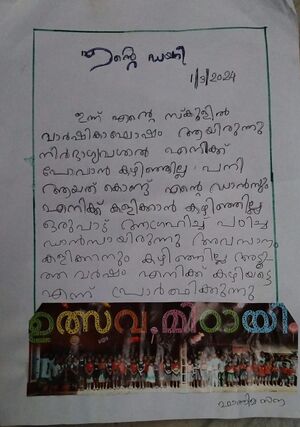 എന്റെ ഡയറി
1/3/2024
ഇന്ന് എന്റെ സ്കൂളിൽ
വാർഷികാഘോഷം ആയിരുന്നു
നിർഭാഗ്യവശാൽ എനിക്ക്
പോവാൻ കഴിഞ്ഞില്ല പനി
ആയത് കൊണ്ടു എന്റെ ഡാൻസും
എനിക്ക് കളിക്കാൻ കഴിഞ്ഞില്ല
ഒരുപാട് ആഗ്രഹിച്ച പഠിച്ച
ഡാൻസായിരുന്നു അവസാനം
കളിക്കാനും കഴിഞ്ഞില്ല അടു
ത്ത വർഷം എനിക്ക് കഴിയട്ടെ
എന്ന് പ്രാർത്ഥിക്കുന്നു
ഉത്സവ.മിഠായി.
ഫാത്തിമ സന